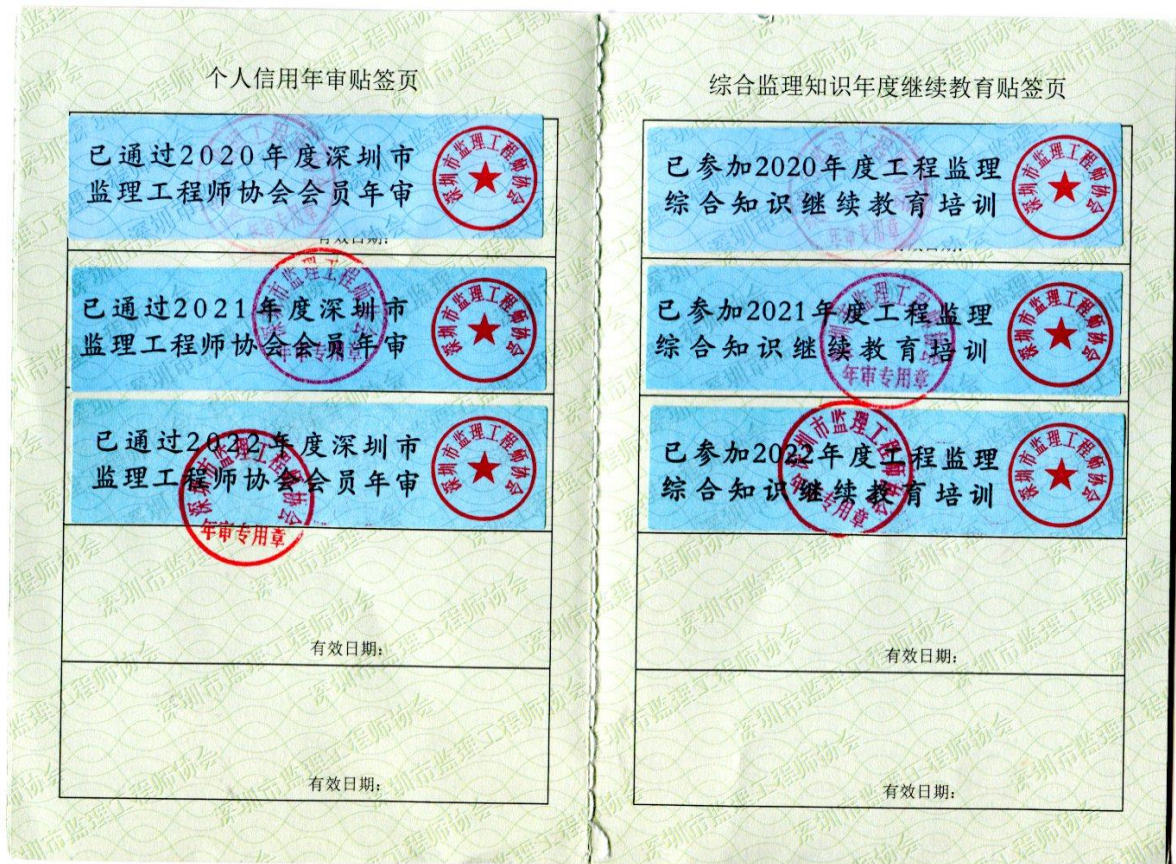 个人信用年审贴签页
已通过2020年度深圳市
监理工程师协会会员年审
深圳市监理工程师协会
年审专用章
有效日期:
已通过2021年度深圳市
监理工程师协会会员年审
深圳市监理工程师协会
年审专用章
已通过2022年度深圳市
监理工程师协会会员年审
深圳市监理工程师协会
深圳市监理工程师协会
年审专用章
有效日期:
有效日期:
综合监理知识年度继续教育贴签页
已参加2020年度工程监理
综合知识继续教育培训
深圳市监理工程师协会
年审专用章
有效日期:
已参加2021年度工程监理
综合知识继续教育培训
深圳市监理工程师协会
年审专用章
已参加2022年度工程监理
综合知识继续教育培训
深圳市监理工程师协会
年审专用章
有效日期:
有效日期: